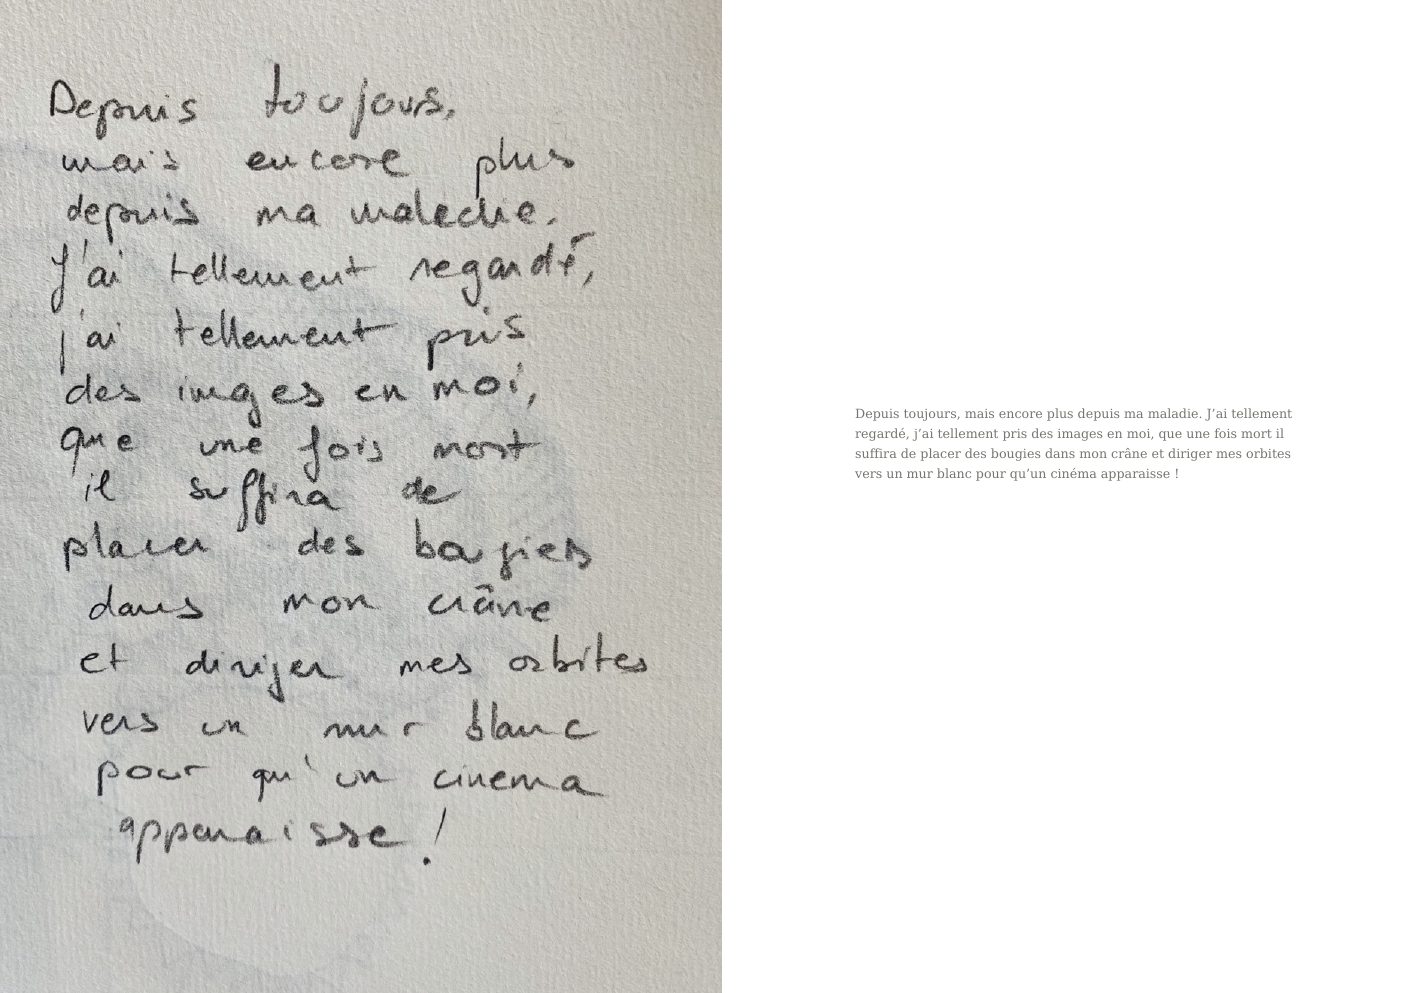 Depuis toujours,
mais encore plus
depuis ma maladie.
J'ai tellement regardé,
j'ai tellement pris
des images en moi,
que une fois mort
il suffira de
placer des bougies
dans mon crâne
et diriger mes orbites
vers un mur blanc
pour qu'un cinema
apparaisse !
Depuis toujours, mais encore plus depuis ma maladie. J’ai tellement
regardé, j’ai tellement pris des images en moi, que une fois mort il
suffira de placer des bougies dans mon crâne et diriger mes orbites
vers un mur blanc pour qu’un cinéma apparaisse !